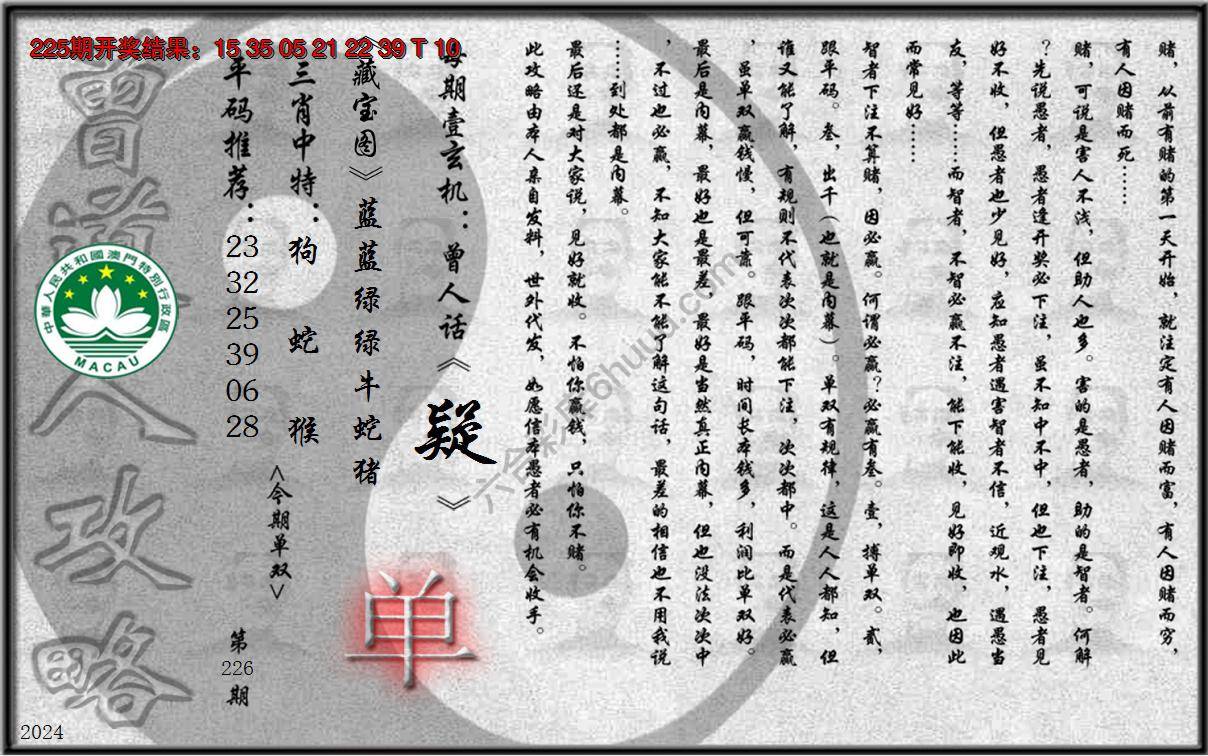 225期开奖结果：15 35 05 21 22 39 T 10
赌，从前有赌的第一天开始，就注定有人因赌而富，有人因赌而穷，
有人因赌而死……
赌，可说是害人不浅，但助人也多。害的是愚者，助的是智者。何解
？先说愚者，愚者逢开奖必下注，虽不知中不中，但也下注，愚者见
好不收，但愚者也少见好，应知愚者遇害智者不信，近观水，遇愚当
友，等等……而智者，不智必赢不注，能下能收，见好即收，也因此
而常见好……
智者下注不算赌，因必赢。何谓必赢？必赢有叁。壹，搏单双。贰，
跟平码。叁，出千（也就是内幕）。单双有规律，这是人人都知，但
谁又能了解，有规则不代表次次都能下注，次次都中。而是代表必赢
，虽单双赢钱慢，但可靠。跟平码，时间长本钱多，利润比单双好。
最后是内幕，最好也是最差，最好是当然真正内幕，但也没法次次中
，不过也必赢，不知大家能不能了解这句话，最差的相信也不用我说
……到处都是内幕。
最后还是对大家说，见好就收。不怕你赢钱，只怕你不赌。
此攻略由本人亲自发料，世外代发，如愿信本愚者必有机会收手。
每期壹玄机：曾人话《疑》
《藏宝图》蓝蓝绿绿牛蛇猪
三肖中特：狗 蛇 猴
平码推荐：23 32 25 39 06 28
<今期单双>
单
第226期
曾道人攻略
中華人民共和國澳門特別行政區
MACAU
2024